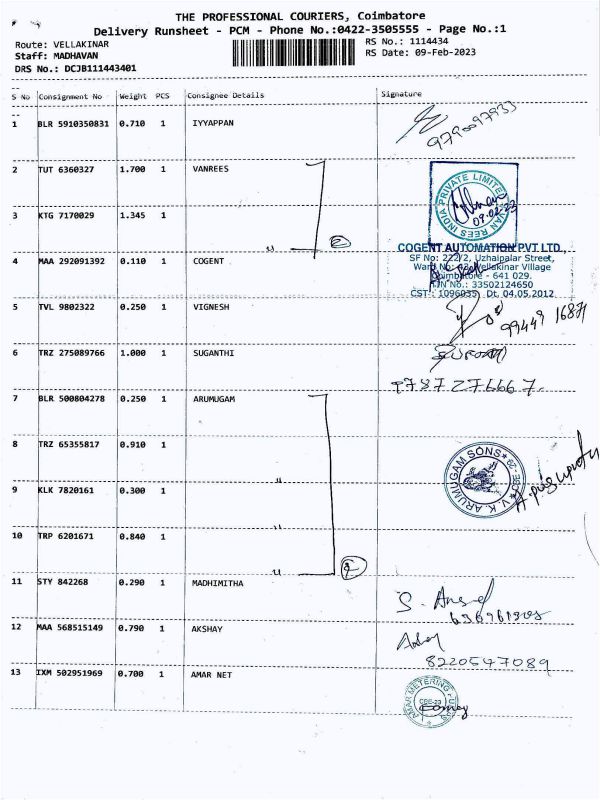 THE PROFESSIONAL COURIERS, Coimbatore
Delivery Runsheet - PCM - Phone No.:0422-3505555 - Page No.:1
Route: VELLAKINAR
RS No.: 1114434
Staff: MADHAVAN
RS Date: 09-Feb-2023
DRS No.: DCJB111443401
S No Consignment No Weight PCS Consignee Details Signature
1 BLR 5910350831 0.710 1 IYYAPPAN
9790097933
2 TUT 6360327 1.700 1 VANREES
VAN REES INDIA PRIVATE LIMITED
09.02.23
3 KTG 7170029 1.345 1
2
COGENT AUTOMATION PVT. LTD.,
SF No: 222/2, Uzhaipalar Street,
4 MAA 292091392 0.110 1 COGENT
Vellakinar Village
Coimbatore - 641 029.
TIN No.: 33502124650
CST: 1096935 Dt. 04.05.2012
5 TVL 9802322 0.250 1 VIGNESH
99449 16871
6 TRZ 275089766 1.000 1 SUGANTHI
9787276667
7 BLR 500804278 0.250 1 ARUMUGAM
8 TRZ 65355817 0.910 1
V.K. ARUMUGAM SONS
CBE-29
9 KLK 7820161 0.300 1
10 TRP 6201671 0.840 1
11 STY 842268 0.290 1 MADHIMITHA
S. Anand
12 MAA 568515149 0.790 1 AKSHAY
8220547089
13 IXM 502951969 0.700 1 AMAR NET